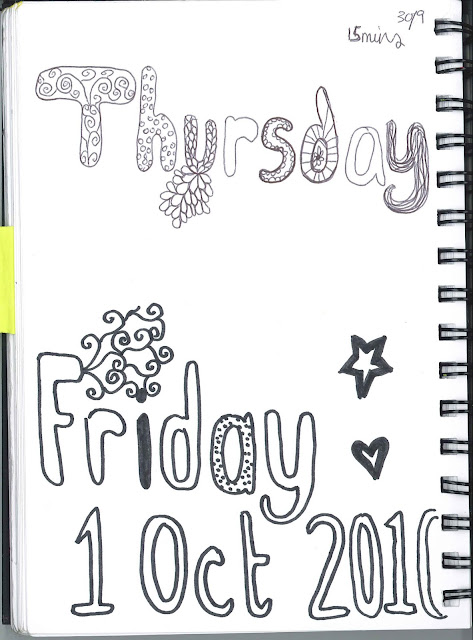 30/9
15mins
Thursday
Friday
1 Oct 2010